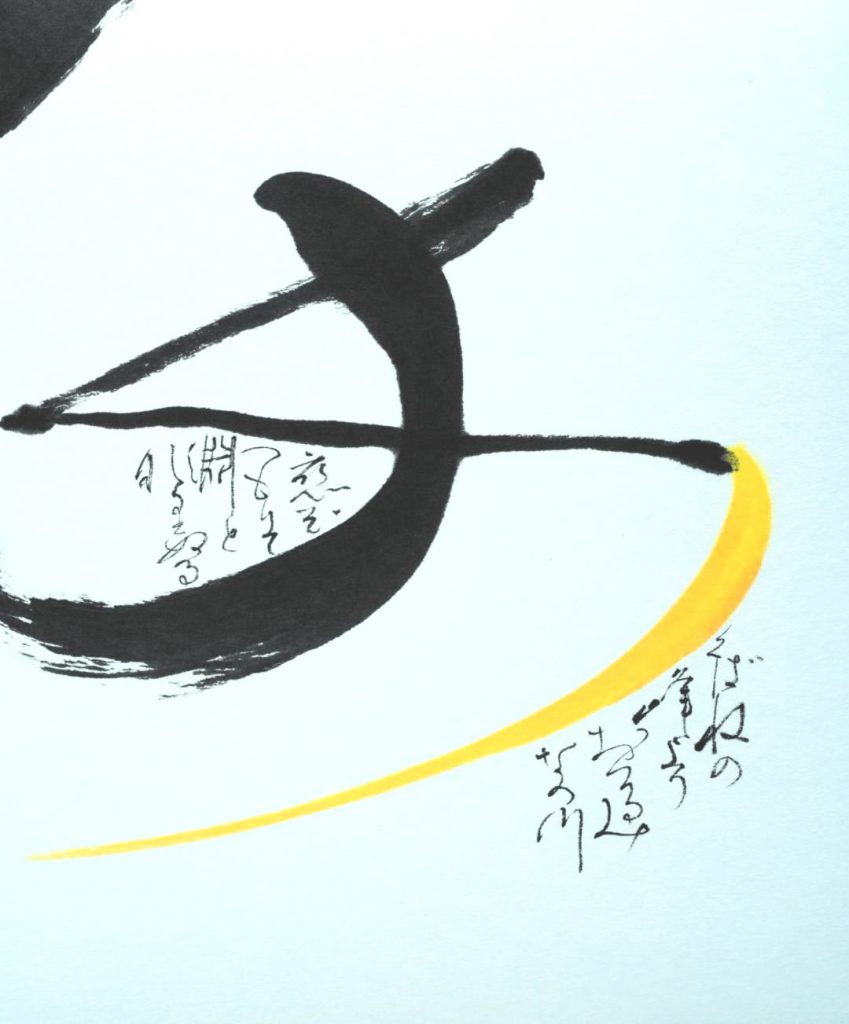 つくばねの
峰より
おつるみ
なの川
恋ぞ
つもりて
淵と